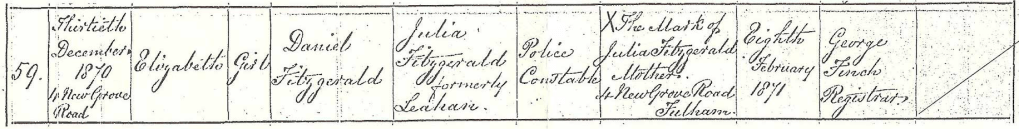 59.
Thirtieth
December
1870
4 New Grove
Road
Elizabeth
Girl
Daniel
Fitzgerald
Julia
Fitzgerald
formerly
Leahan.
Police
Constable
X The Mark of
Julia Fitzgerald
Mother.
4 New Grove Road
Fulham.
Eighth
February
1871
George
Finch
Registrar.